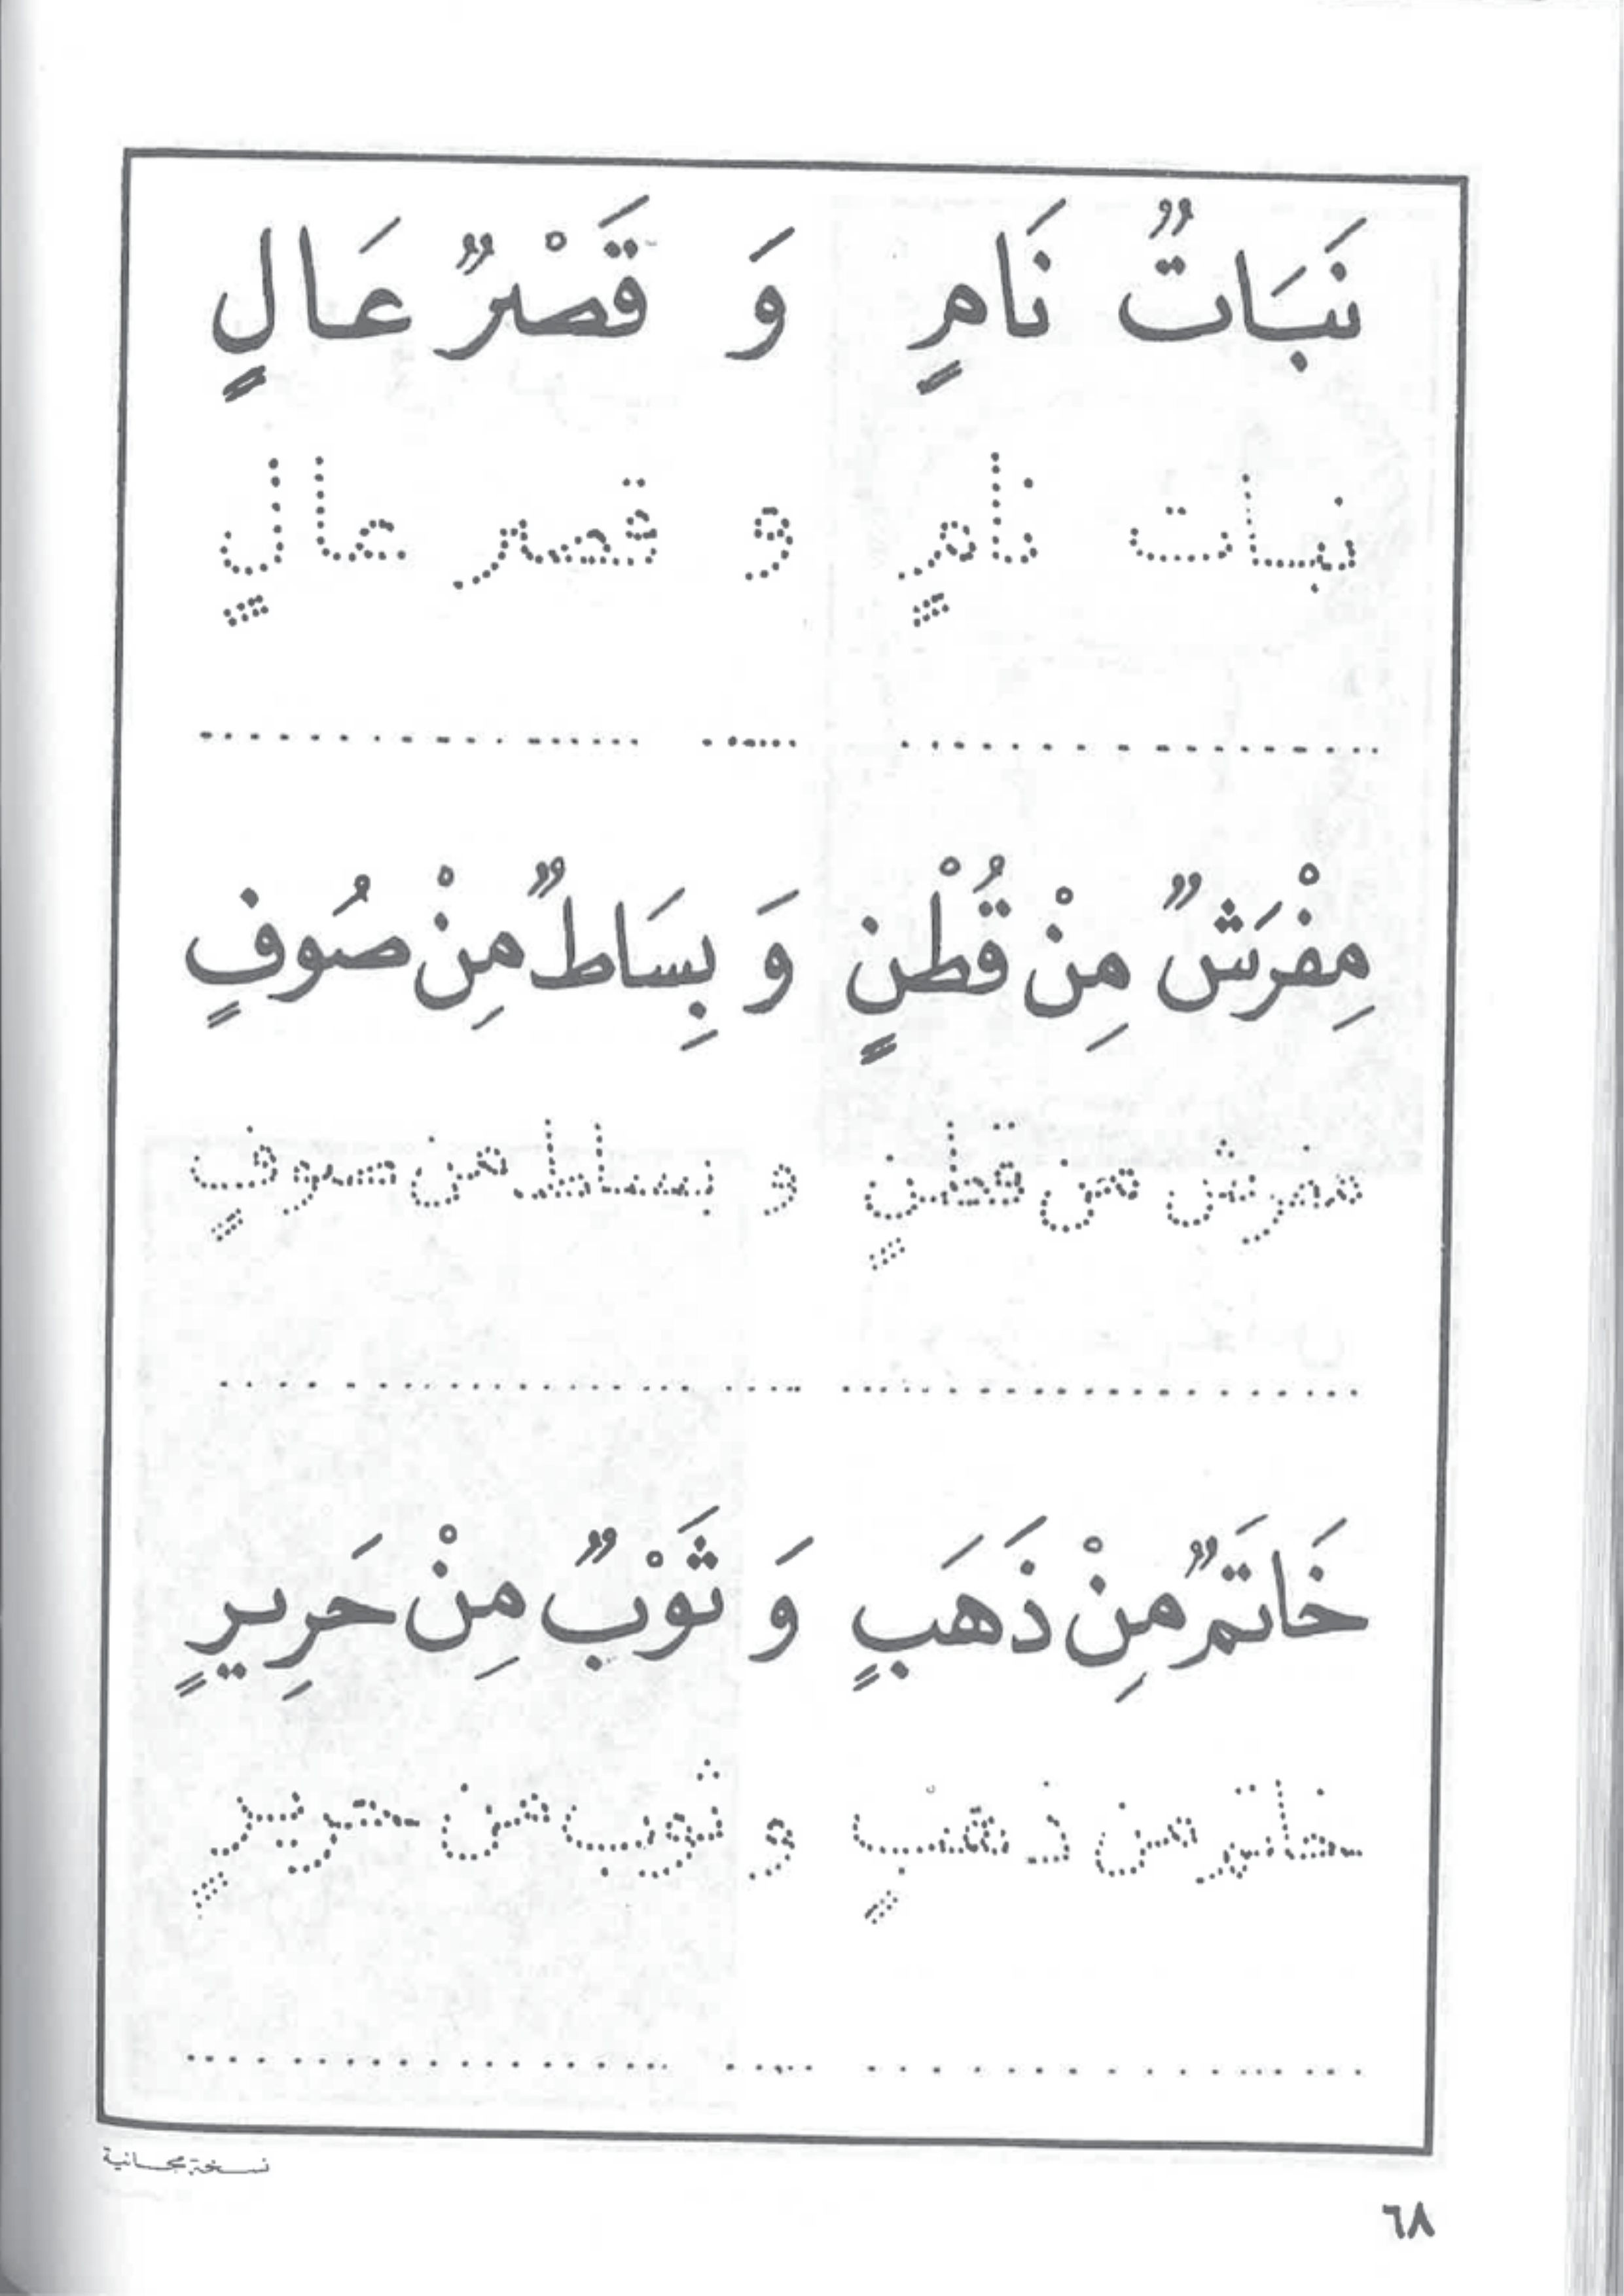 نَبَاتٌ نَامٍ وَ قَصْرٌ عَالٍ
نبات نامٍ و قصر عالٍ
مِفْرَشٌ مِنْ قُطْنٍ وَ بِسَاطٌ مِنْ صُوفٍ
مفرش من قطنٍ و بساط من صوفٍ
خَاتَمٌ مِنْ ذَهَبٍ وَ ثَوْبٌ مِنْ حَرِيرٍ
خاتم من ذهبٍ و ثوب من حريرٍ
نسخة مجانية
٦٨